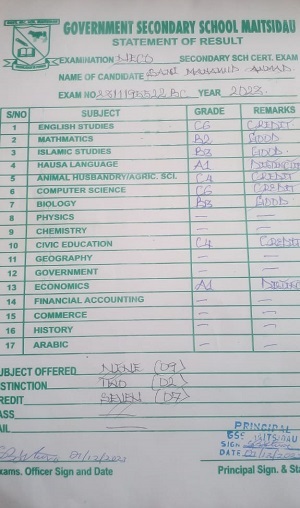 GOVERNMENT SECONDARY SCHOOL MAITSIDAU
STATEMENT OF RESULT
EXAMINATION NECO SECONDARY SCH CERT. EXAM
NAME OF CANDIDATE SANI
EXAM NO. YEAR 2023
S/NO SUBJECT GRADE REMARKS
1 ENGLISH STUDIES C6 CREDIT
2 MATHMATICS B2 GOOD
3 ISLAMIC STUDIES B3 GOOD
4 HAUSA LANGUAGE A1
5 ANIMAL HUSBANDRY/AGRIC. SCI. C4 CREDIT
6 COMPUTER SCIENCE C6 CREDIT
7 BIOLOGY B3 GOOD
8 PHYSICS — —
9 CHEMISTRY — —
10 CIVIC EDUCATION C4 CREDIT
11 GEOGRAPHY — —
12 GOVERNMENT — —
13 ECONOMICS A1
14 FINANCIAL ACCOUNTING — —
15 COMMERCE — —
16 HISTORY — —
17 ARABIC — —
UBJECT OFFERED NINE (09)
ISTINCTION TWO (02)
REDIT SEVEN (07)
ASS
AIL
PRINCIPAL
GSS MAITSIDAU
SIGN
DATE
xams. Officer Sign and Date Principal Sign. & Sta